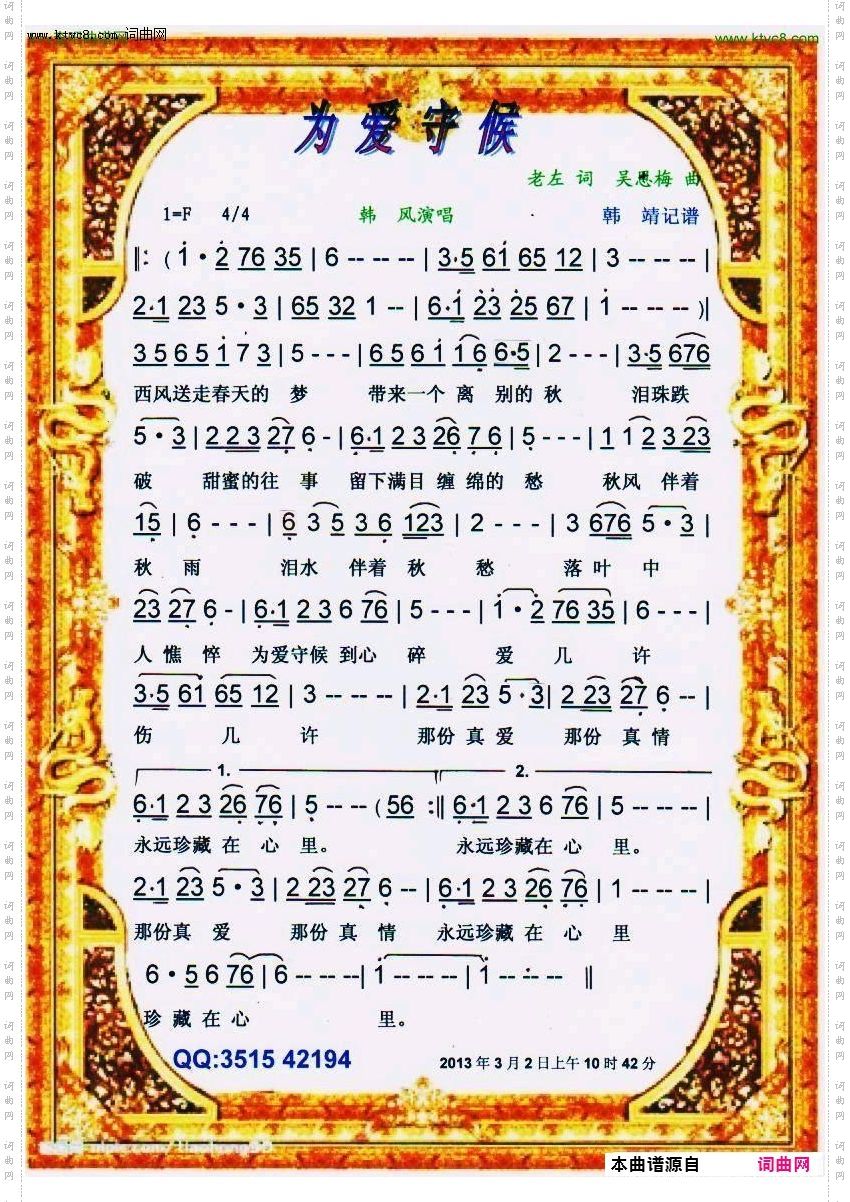 www.ktvc8.com 词曲网
www.ktvc8.com
为爱守候
老左 词 吴恩梅 曲
1=F 4/4 韩 风演唱 韩 靖记谱
‖: ( 1·2 76 35 | 6 -- -- -- | 3·5 61 65 12 | 3 -- -- -- |
2·1 23 5·3 | 65 32 1 -- | 6·1 23 25 67 | 1 -- -- -- )‖
3 5 6 5 1 7 3 | 5 - - - | 6 5 6 1 1 6 6·5 | 2 - - - | 3·5 676
西风送走春天的 梦 带来一个 离 别的 秋 泪珠跌
5·3 | 2 2 3 27 6 - | 6·1 2 3 26 7 6 | 5 - - - | 1 1 2 3 23
破 甜蜜的往 事 留下满目 缠 绵的 愁 秋风 伴着
15 | 6 - - - | 6 3 5 3 6 123 | 2 - - - | 3 676 5·3 |
秋 雨 泪水 伴着 秋 愁 落 叶 中
23 27 6 - | 6·1 2 3 6 76 | 5 - - - | 1·2 76 35 | 6 - - - |
人 憔 悴 为爱守候 到心 碎 爱 几 许
3·5 61 65 12 | 3 -- -- -- | 2·1 23 5·3 | 2 23 27 6 -- |
伤 几 许 那份 真 爱 那份 真 情
1. 2.
6·1 2 3 26 76 | 5 -- -- ( 56 :‖ 6·1 2 3 6 76 | 5 -- -- -- |
永远珍藏 在 心 里。 永远珍藏在 心 里。
2·1 23 5·3 | 2 23 27 6 -- | 6·1 2 3 26 76 | 1 -- -- -- |
那份真 爱 那份 真 情 永远珍藏 在 心 里
6·5 6 76 | 6 -- -- -- | 1 -- -- -- | 1 -- -- -- ‖
珍 藏 在 心 里。
QQ:3515 42194 2013 年 3 月 2 日上午 10 时 42 分
本曲谱源自 词曲网